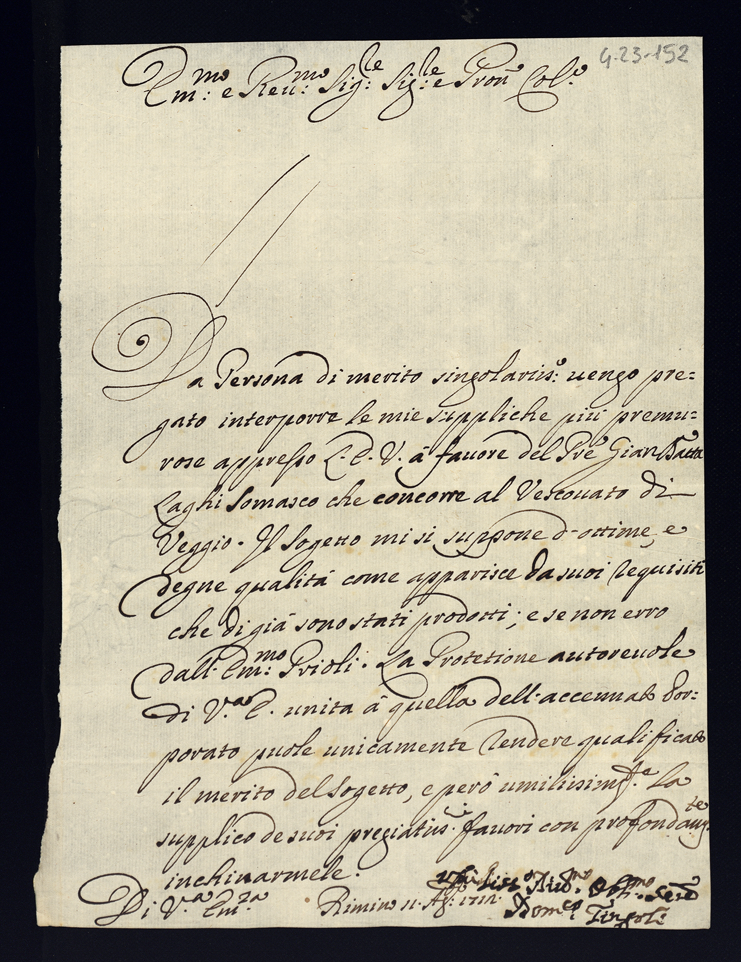 4.23.152
Em:mo e Reu:mo Sig:le Sig:le e Pron Col:o
Da Persona di merito singolariss:o uengo pre=
gato interporre le mie suppliche più premu=
rose appresso L. E. V. à fauore del Pre Gian Batta
Laghi Somasco che concorre al Vescouato di
Veggio. Il Sogetto mi si suppone d'ottime, e
degne qualità come apparisce da suoi requisiti
che di già sono stati prodotti; e se non erro
dall'Em:mo Prioli. La Protetione autoreuole
di V.a E. unita à quella dell'accennato Por=
porato puole unicamente rendere qualificato
il merito del Sogetto, e però umilissim.te La
supplico de suoi pregiatiss:i fauori con profondam.te
inchinarmele.
Di V.a Em.za Rimino 11. Ag: 1712.
Diu.mo Obl.mo Ser.